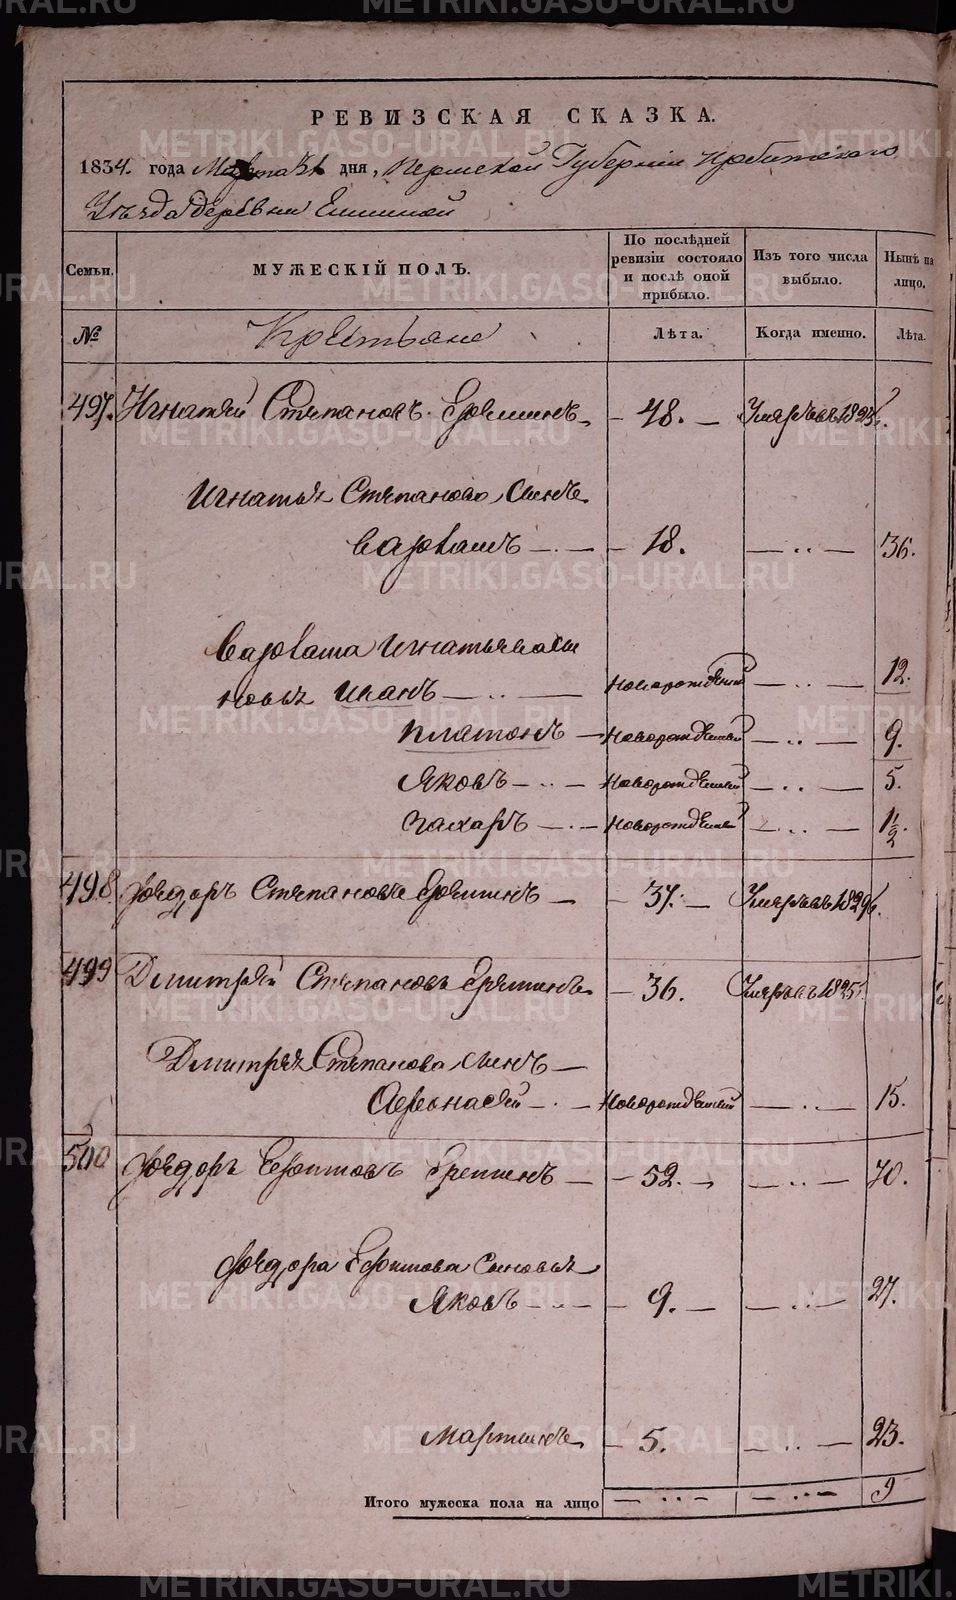 РЕВИЗСКАЯ СКАЗКА.
1834. года Марта 31 дня, Пермской Губернии Ирбитского
Уезда деревни Ерзиной
Семьи.
МУЖЕСКІЙ ПОЛЪ.
По послѣдней ревизіи состояло и послѣ оной прибыло.
Изъ того числа выбыло.
Нынѣ на лицо.
№
Крестьяне
Лѣта.
Когда именно.
Лѣта.
497. Игнатей Степановъ — 48. — Умеръ въ
Игнатья Степанова сынъ
— 18. — 36.
Игнатьева сы
новья Иванъ — новорожденный — 12.
Платонъ — новорожденный — 9.
Яковъ — новорожденный — 5.
Захаръ — новорожденный — 1½.
498 Федоръ Степановъ — 37. — Умеръ въ 1826.
499 Дмитрей Степановъ — 36. Умеръ въ 1825.
Дмитрея Степанова сынъ —
Афонасей — новорожденный — 15.
500 Федоръ — 52. — 70.
Федора сыновья
Яковъ — 9. — 27.
Мартинъ — 5. — 23.
Итого мужеска пола на лицо — 9
METRIKI.GASO-URAL.RU